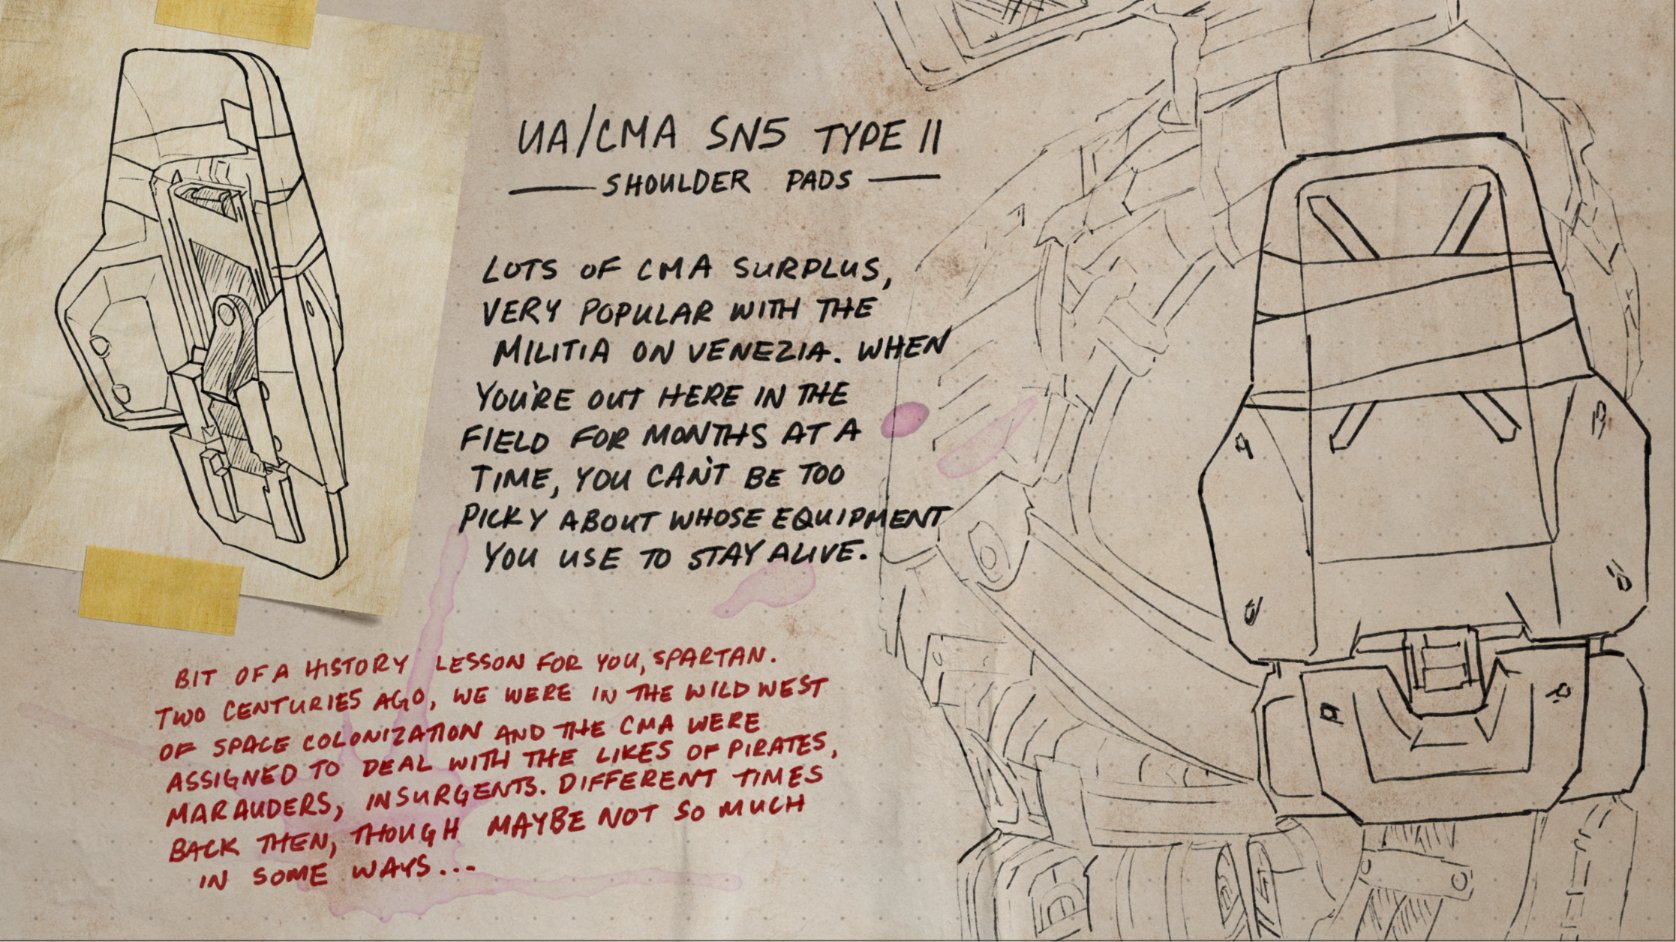 UA/CMA SN5 TYPE II
SHOULDER PADS
LOTS OF CMA SURPLUS,
VERY POPULAR WITH THE
MILITIA ON VENEZIA. WHEN
YOU'RE OUT HERE IN THE
FIELD FOR MONTHS AT A
TIME, YOU CAN'T BE TOO
PICKY ABOUT WHOSE EQUIPMENT
YOU USE TO STAY ALIVE.
BIT OF A HISTORY LESSON FOR YOU, SPARTAN.
TWO CENTURIES AGO, WE WERE IN THE WILD WEST
OF SPACE COLONIZATION AND THE CMA WERE
ASSIGNED TO DEAL WITH THE LIKES OF PIRATES,
MARAUDERS, INSURGENTS. DIFFERENT TIMES
BACK THEN, THOUGH MAYBE NOT SO MUCH
IN SOME WAYS...